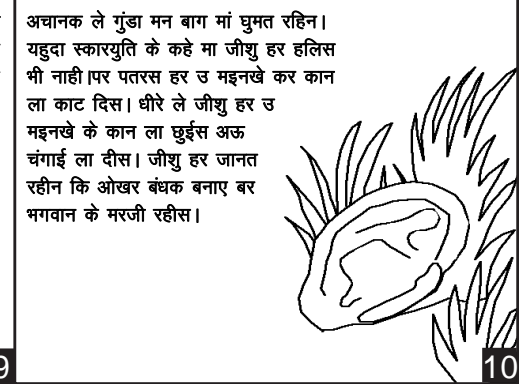 अचानक ले गुंडा मन बाग मां घुमत रहिन।
यहुदा स्कारयुति के कहे मा जीशु हर हलिस
भी नाही।पर पतरस हर उ मइनखे कर कान
ला काट दिस। धीरे ले जीशु हर उ
मइनखे के कान ला छुईस अऊ
चंगाई ला दीस। जीशु हर जानत
रहीन कि ओखर बंधक बनाए बर
भगवान के मरजी रहीस।
9
10